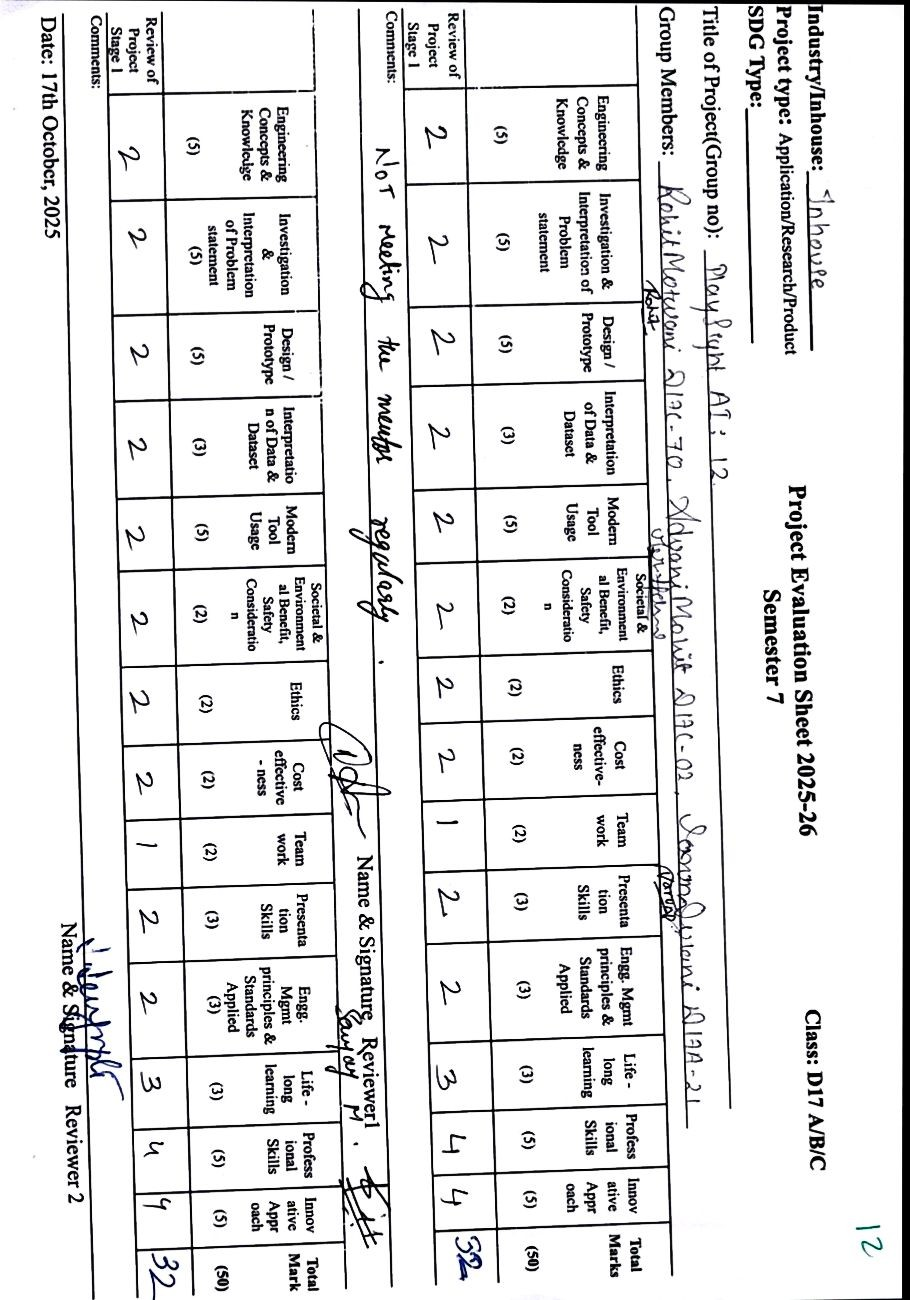 12
Project Evaluation Sheet 2025-26
Class: D17 A/B/C
Industry/Inhouse: Inhouse
Semester 7
Project type: Application/Research/Product
SDG Type:
Title of Project(Group no): PlaySight AI : 12
Group Members: Rohit Motwani D17C-70, Advani Mohit D17C-02, D17A-21
Rohit
Engineering Concepts & Knowledge Investigation & Interpretation of Problem statement Design / Prototype Interpretation of Data & Dataset Modern Tool Usage Societal & Environment al Benefit, Safety Consideratio n Ethics Cost effective- ness Team work Presenta tion Skills Engg. Mgmt principles & Standards Applied Life - long learning Profess ional Skills Innov ative Appr oach Total Marks
(5) (5) (5) (3) (5) (2) (2) (2) (2) (3) (3) (3) (5) (5) (50)
Review of Project Stage 1 2 2 2 2 2 2 2 2 1 2 2 3 4 4 32
Comments: Not Meeting the mentor regularly.
Name & Signature Reviewer1
Engineering Concepts & Knowledge Investigation & Interpretation of Problem statement Design / Prototype Interpretatio n of Data & Dataset Modern Tool Usage Societal & Environment al Benefit, Safety Consideratio n Ethics Cost effective - ness Team work Presenta tion Skills Engg. Mgmt principles & Standards Applied Life - long learning Profess ional Skills Innov ative Appr oach Total Mark
(5) (5) (5) (3) (5) (2) (2) (2) (2) (3) (3) (3) (5) (5) (50)
Review of Project Stage 1 2 2 2 2 2 2 2 2 1 2 2 3 4 4 32
Comments:
Date: 17th October, 2025
Name & Signature Reviewer 2